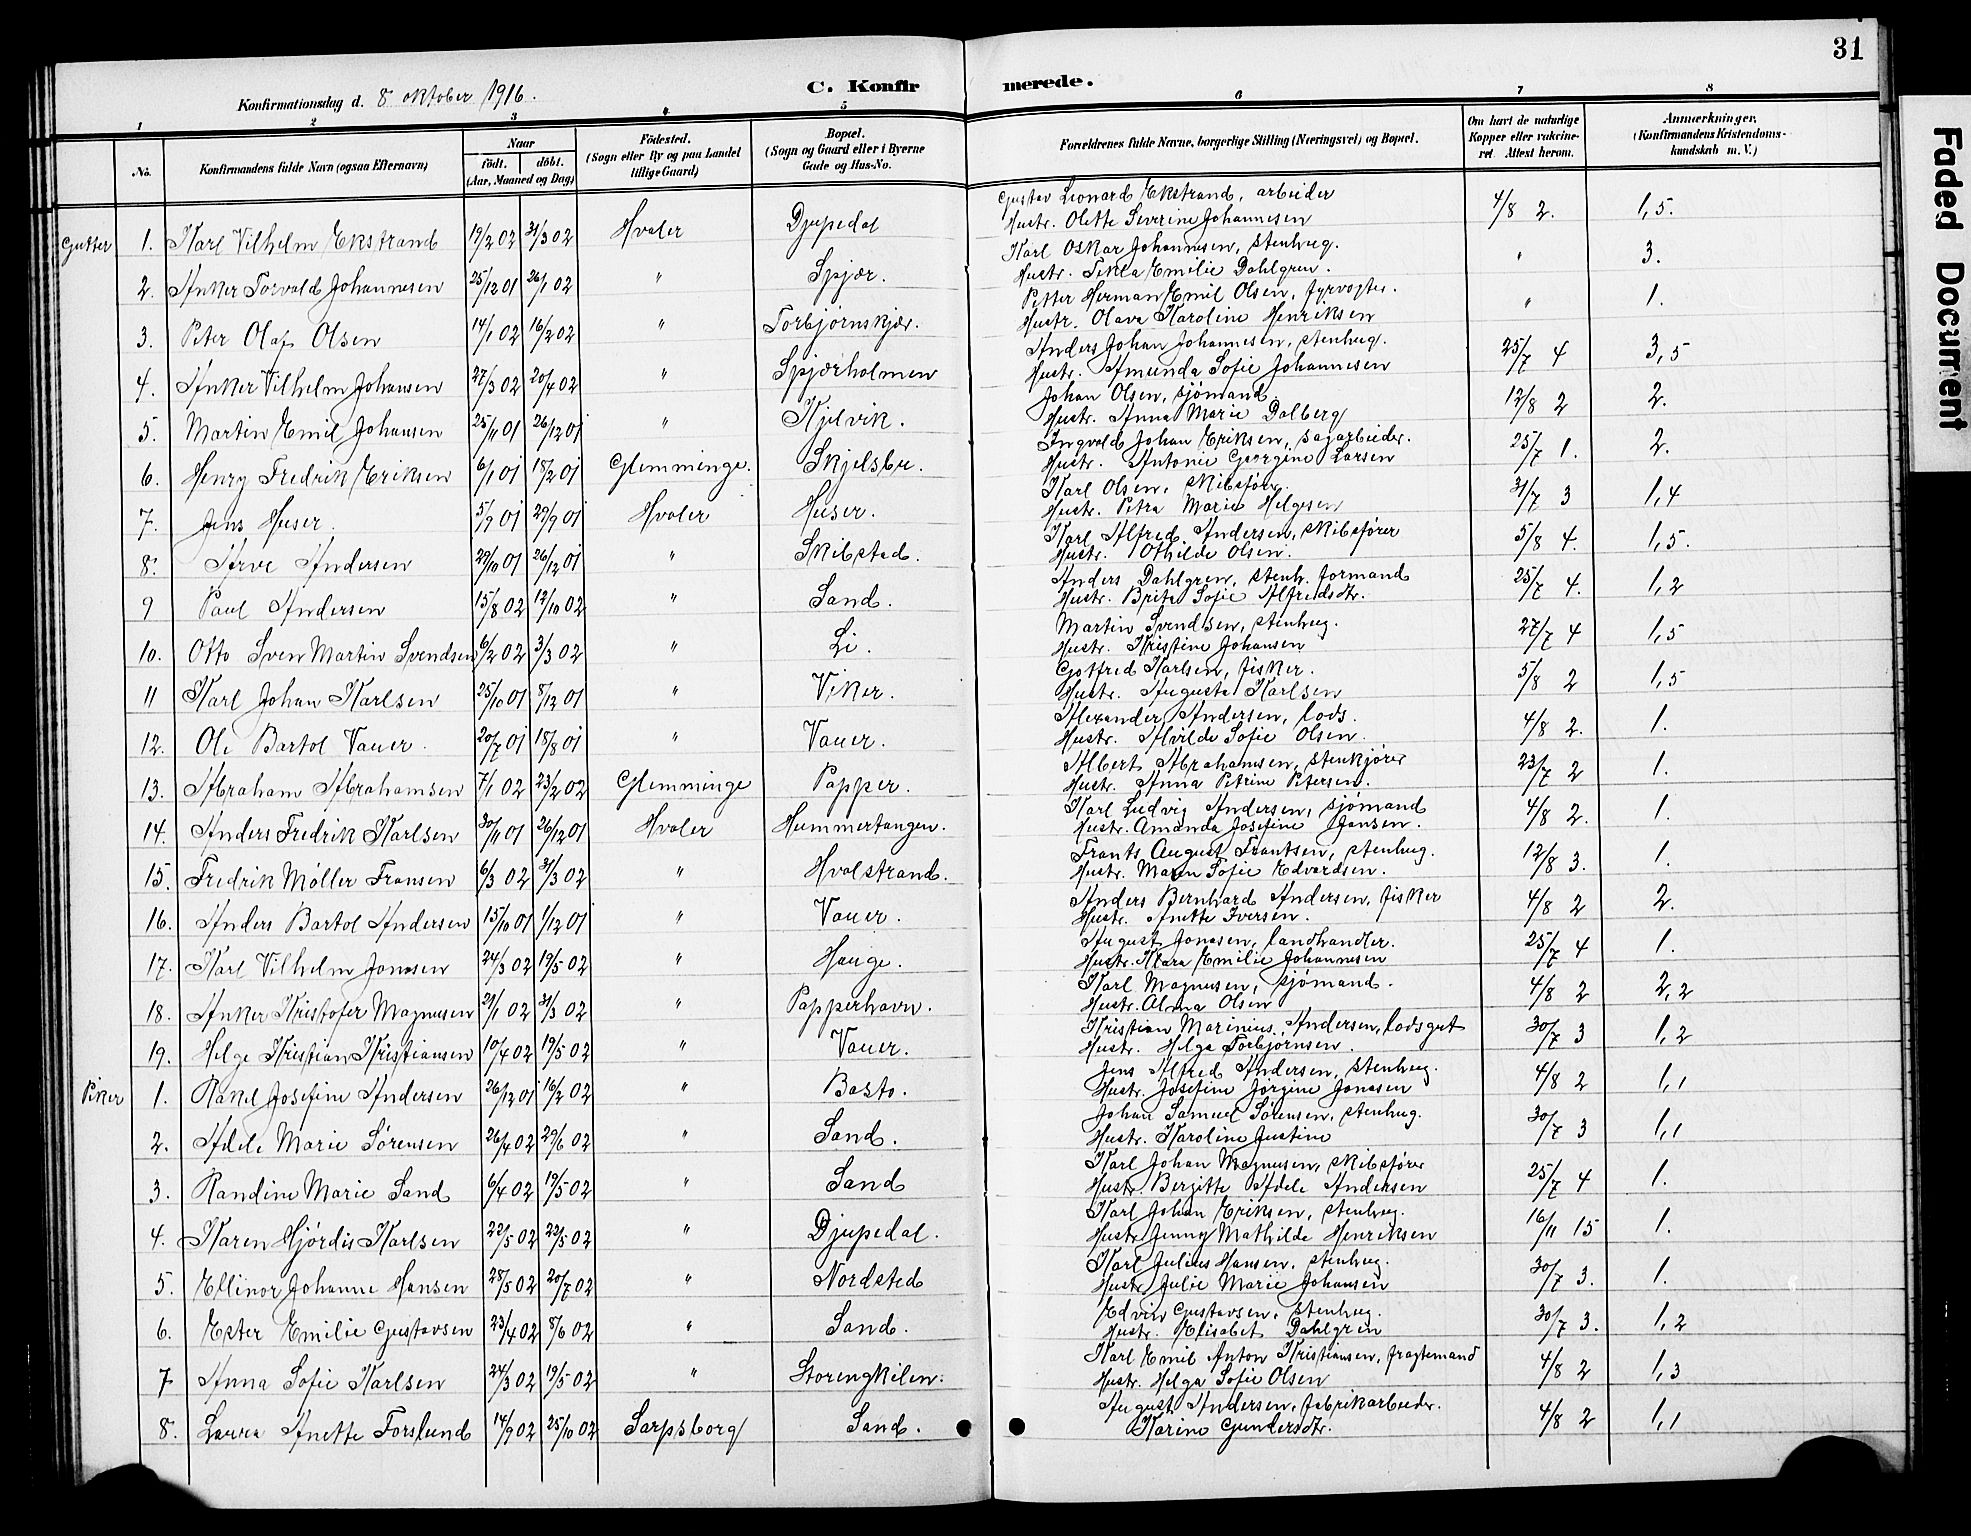 31
Faded Document
Konfirmationsdag d. 8 oktober 1916.
C. Konfirmerede.
1 2 3 4 5 6 7 8
No.
Konfirmandens fulde Navn (ogsaa Efternavn)
Naar
født. døbt.
(Aar, Maaned og Dag)
Fødested.
(Sogn eller By og paa Landet
tillige Gaard)
Bopæl.
(Sogn og Gaard eller i Byerne
Gade og Hus-No.
Forældrenes fulde Navne, borgerlige Stilling (Næringsvei) og Bopæl.
Om havt de naturlige
Kopper eller vakcine-
ret. Attest herom.
Anmerkninger.
(Konfirmandens Kristendoms-
kundskab m. V.)
Gutter 1. Karl Vilhelm Ekstrand 19/2 02 31/3 02 Hvaler Djupedal
Gustav Leonard Ekstrand, arbeider
Hustr. Olette Severine Johannesen 4/8 2. 1,5.
2. Anker Torvald Johannesen 25/12 01 26/1 02 " Spjær.
Karl Oskar Johannesen, stenhug.
Hustr. Tekla Emilie Dahlgren. " 3.
3. Peter Olaf Olsen 14/1 02 16/2 02 " Torbjørnskjær.
Petter Herman Emil Olsen, fyrvogter.
Hustr. Olava Karoline Henriksen " 1.
4. Anker Vilhelm Johansen 27/3 02 20/4 02 " Spjærholmen
Anders Johan Johannesen, stenhug.
Hustr. Amunda Sofie Johannesen 25/7 4 3,5
5. Martin Emil Johansen 25/11 01 26/12 01 " Kjelvik.
Johan Olsen, sjømand.
Hustr. Anna Marie Dalberg 12/8 2 2.
6. Henry Fredrik Eriksen 6/1 01 18/2 01 Glemminge. Skjelsbu.
Ingvald Johan Eriksen, sagarbeider.
Hustr. Antonie Georgine Larsen 25/7 1. 2.
7. Jens Huser. 5/9 01 29/9 01 Hvaler Huser.
Karl Olsen, skibsfører
Hustr. Petra Marie Helgesen 31/7 3 1,4
8. Arve Andersen 29/10 01 26/12 01 " Skibstad.
Karl Alfred Andersen, skibsfører
Hustr. Othilde Olsen. 5/8 4. 1,5.
9 Paul Andersen 15/8 02 12/10 02 " Sand.
Anders Dahlgren, stenh. formand
Hustr. Brita Sofie Alfredsdtr. 25/7 4. 1,2
10. Otto Sven Martin Svendsen 6/2 02 3/3 02 " Li.
Martin Svendsen, stenhug.
Hustr. Kristine Johansen 27/7 4 1,5
11 Karl Johan Karlsen 25/10 01 8/12 01 " Viker.
Gotfred Karlsen, fisker.
Hustr. Augusta Karlsen 5/8 2 1,5
12. Ole Bartol Vauer. 20/7 01 18/8 01 " Vauer.
Alexander Andersen, lods.
Hustr. Alvilde Sofie Olsen. 4/8 2. 1.
13. Abraham Abrahamsen 7/1 02 23/2 02 Glemminge Papper.
Albert Abrahamsen, stenkjører
Hustr. Anna Petrine Petersen. 23/7 2 1.
14. Anders Fredrik Karlsen 30/11 01 26/12 01 Hvaler Hummertangen.
Karl Ludvig Andersen, sjømand
Hustr. Amanda Josefine Jansen. 4/8 2. 1.
15. Fredrik Møller Fransen 6/3 02 31/3 02 " Hvalstrand.
Frants August Frantsen, stenhug.
Hustr. Maren Sofie Edvardsen. 12/8 3. 1.
16. Anders Bartol Andersen 15/10 01 1/12 01 " Vauer.
Anders Bernhard Andersen, fisker
Hustr. Anette Iversen. 4/8 2 2.
17. Karl Vilhelm Jonasen 24/3 02 19/5 02 " Hauge.
August Jonasen, landhandler.
Hustr. Klara Emilie Johannesen 25/7 4 1.
18. Anker Kristofer Magnusen 29/1 02 31/3 02 " Papperhavn.
Karl Magnusen, sjømand.
Hustr. Alma Olsen 4/8 2 2,2
19. Helge Kristian Kristiansen 10/4 02 19/5 02 " Vauer.
Kristian Marinius Andersen, lodsgut
Hustr. Helga Torbjørnsen. 30/7 3 1,2
Piker 1. Rakel Josefine Andersen 26/12 01 16/2 02 " Basto.
Jens Alfred Andersen, stenhug.
Hustr. Josefine Jørgine Jonasen 4/8 2 1,1
2. Adele Marie Sørensen 26/4 02 29/6 02 " Sand.
Johan Samuel Sørensen, stenhug.
Hustr. Karoline Justine 30/7 3 1,1
3. Randine Marie Sand 6/4 02 19/5 02 " Sand
Karl Johan Magnusen, skibsfører
Hustr. Bergitte Adele Andersen 25/7 4 1.
4. Karen Hjørdis Karlsen 22/5 02 22/5 02 " Djupedal.
Karl Johan Eriksen, stenhug.
Hustr. Jenny Mathilde Henriksen 16/11 15 1.
5. Ellinor Johanne Hansen 28/5 02 20/7 02 " Nordsted
Karl Julius Hansen, stenhug.
Hustr. Julie Marie Johansen 30/7 3. 1.
6. Ester Emilie Gustavsen 23/4 02 8/6 02 " Sand.
Edvin Gustavsen, stenhug.
Hustr. Elisabet Dahlgren 30/7 3. 1,2
7 Anna Sofie Karlsen 24/3 02 19/5 02 " Storengkilen.
Karl Emil Anton Kristiansen, fragtemand
Hustr. Helga Sofie Olsen 4/8 2 1,3
8. Laura Anette Forslund 14/9 02 25/10 02 Sarpsborg Sand.
August Andersen, fabrikarbeider.
Karine Gundersdtr. 4/8 2 1,1